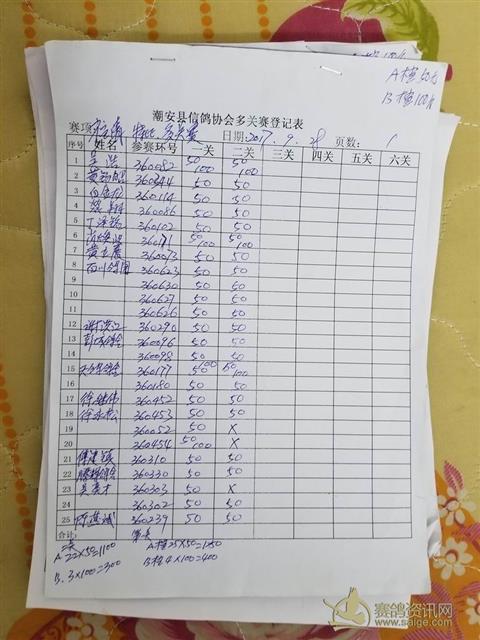 A档50元
B档100元
潮安县信鸽协会多关赛登记表
赛项: 多关赛 日期: 2017.9. 页数: 1
序号 姓名 参赛环号 一关 二关 三关 四关 五关 六关
1 吴浩 360082 50 100 50 100
2 黄 360344 50 50
3 360114 50 50
4 360086 50 50
5 360102 50 50
6 360171 50 100 50 100
7 黄 360073 50 50
8 百川鸽園 360623 50 50
9 360630 50 50
10 360627 50 50
11 360626 50 50
12 谢洪江 360290 50 50
13 360096 50 50
14 360098 50 50
15 360177 50 100 50 100
16 360180 50 50
17 徐继伟 360452 50 50
18 徐永松 360453 50 50
19 360052 50 X
20 360454 50 100 X
21 傅建 360310 50 50
22 360330 50 50
23 吴 才 360303 50 X
24 360302 50 50
25 陈 斌 360239 50 50
合计:
二关
A 22X50=1100
B. 3X100=300
第一关
A档25X50=1250
B档4X100=400
赛鸽资讯网
www.saige.com